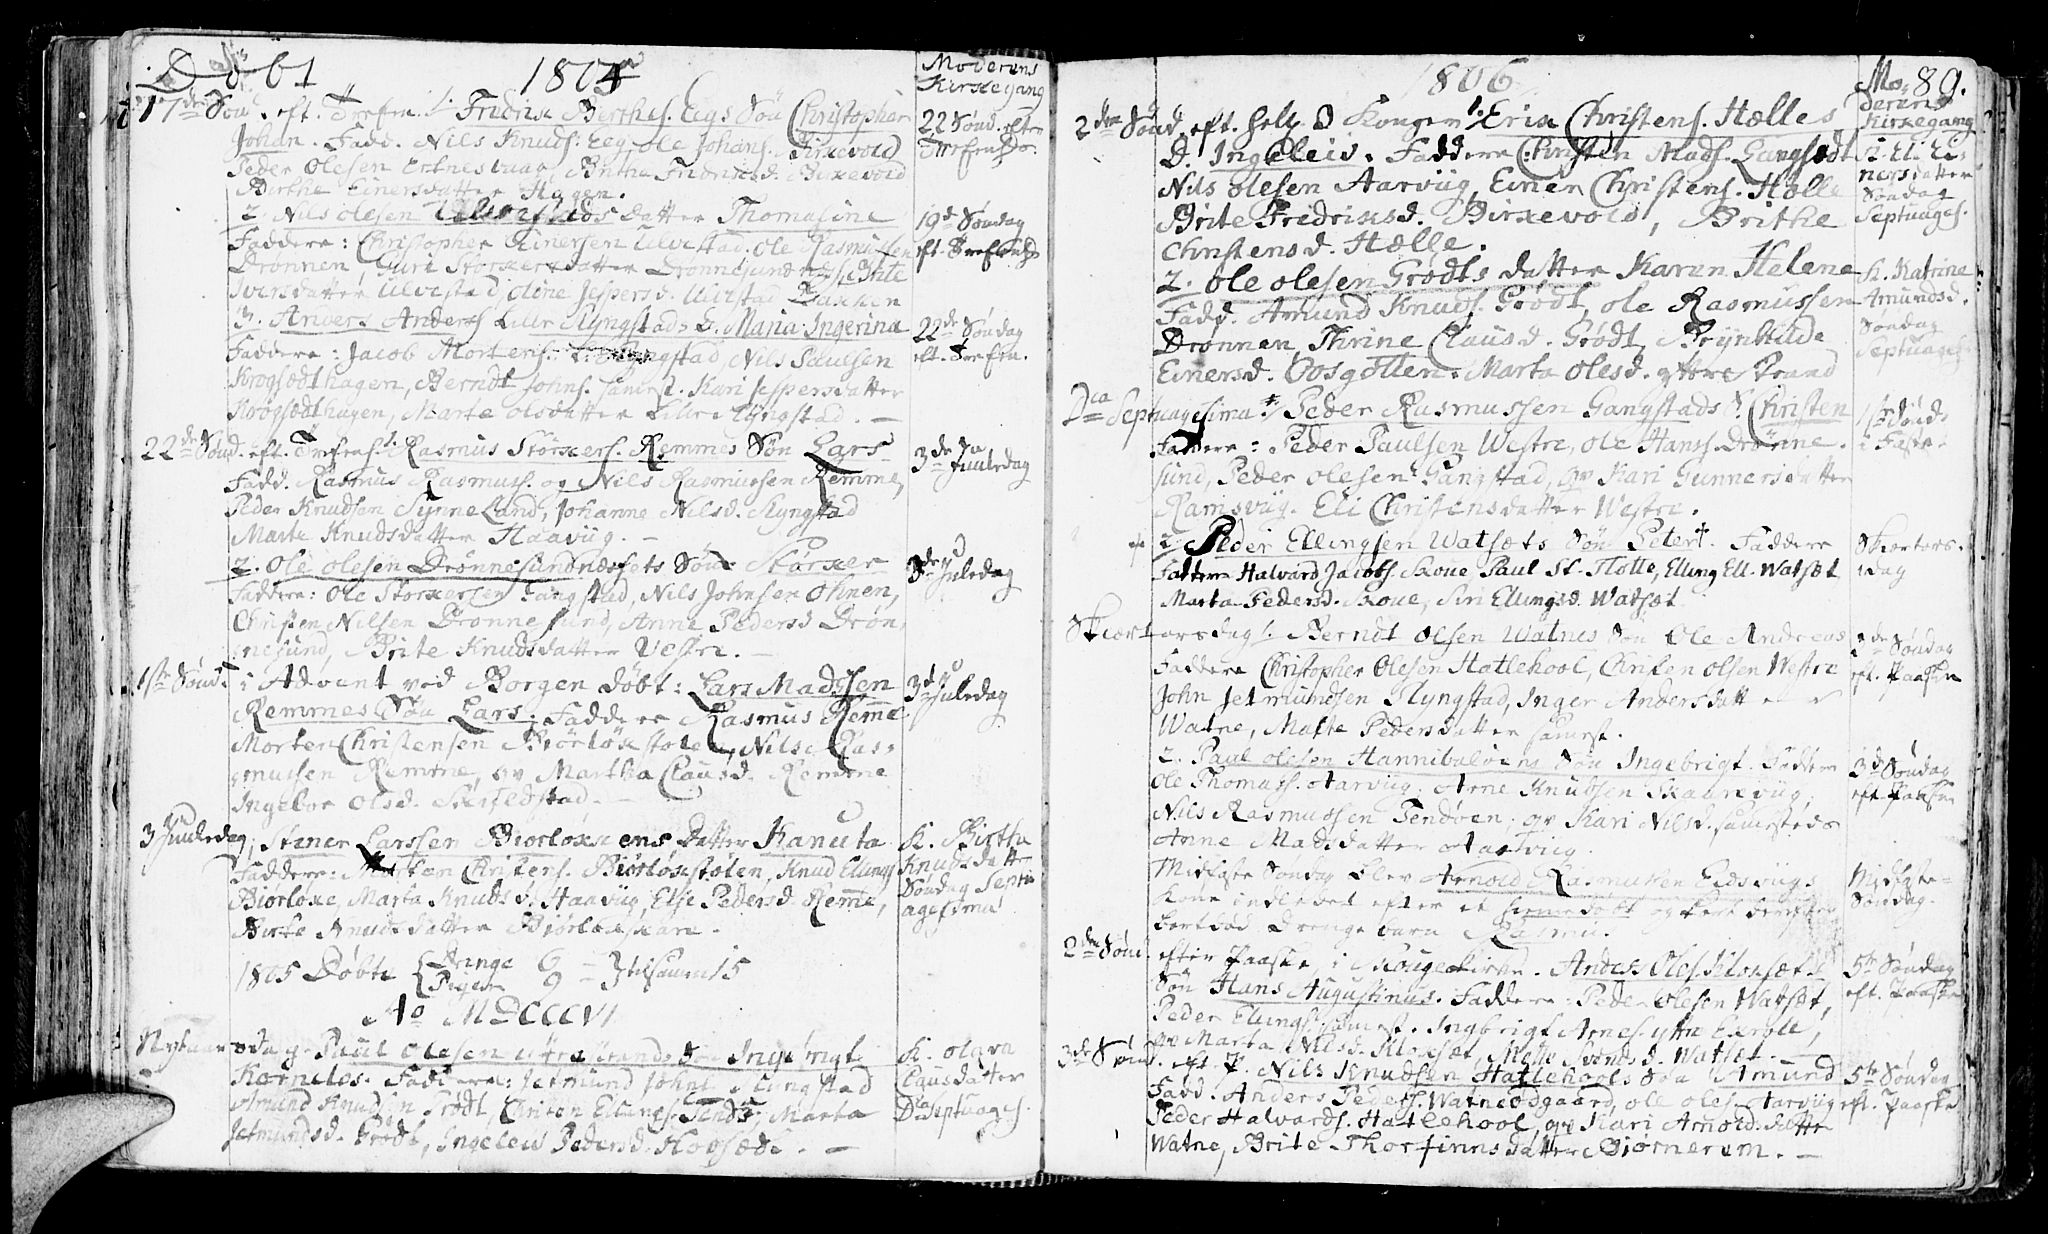 Døbt
1805
Moderens
Kirkegang
17de Sønd. eft. Trefen. 1. Fridrix Berthes. Eegs Søn Christopher
Johan. Fadd. Nils Knuds. Eeg, Ole Johans. Birkevold
Peder Olesen Birthe Fridrixsd. Birkevold
Birthe Einersdatter Hagen.
22 Sønd. efter
Trefenh.
2. Nils Olesen Ulvestads datter Thomasine
Faddere: Christopher Einersen Ulvestad, Ole Rasmussen
Drønnen, Guri Storkersdatter Drønnesundnes, Brite
Iversdatter Ulvestad, Oline Jespersd. Ulvestad Bakken
19de Søndag
eft. Trefenh.
3. Anders Anders. Lille Ryngstads D. Maria Ingerina
Faddere: Jacob Mortens. L. Ryngstad, Nils Paulsen
Krogsædthagen, Berndt Johns. samest. Kari Jespersdatter
Krogsædthagen, Marte Olsdatter Lille Ryngstad. —
22de Søndag
eft. Trefen.
22de Sønd. eft. Trefens. 1. Rasmus Störkers. Remmes Søn Lars
Fadd. Rasmus Rasmuss. og Nils Rasmussen Remme,
Peder Knudsen Synneland, Johanne Nilsd. Ryngstad
Marte Knudsdatter Haavüg. —
3de Juuledag
2. Ole Olesen Drønnesundnæssets Søn Störker
Faddere: Ole Storkersen Tangstad, Nils Johnsen Ohnen,
Christen Nilsen Drønnesund, Anne Pedersd. Drøn,
nesund, Brite Knudsdatter Vestre. —
3de Juledag
1ste Sønd. i Advent ved Borgen døbt: Lars Madssen
Remmes Søn Lars. Faddere Rasmus Remme
Morten Christensen Biörlöxstølen, Nils Ras-
mussen Remme, qv Martha Clausd. Remme
Ingebor Olsd. Skieldstad. —
3de Juledag
3 Juuledag, Stener Larssen Biorløxens Datter Kanuta
Faddere: Morten Christens. Biörløxstølen, Knud Ellings.
Biørløxe, Marta Knudsd. Haavüg, Else Pedersd. Remme,
Birte Knudsdatter Biörløxskare.
K. Birthe
Knudsdatter
Søndag Septu
agesima
1805 Døbte Drenge 6 — Piger 9 — tilsam 15
Ao MDCCCVI
Nytaarsdag. Paul Olesen Strands Søn Ingebrigt
Kornelus. Faddere: Jetmund Johns. Ryngstad
Amund Knudsen Grödt, Christen Ellings. Tendø, Marta
Jetmundsd. Grödt, Ingeleiv Pedersd. Hogsædt. —
K. Olava
Clausdatter
Dca Septuages.
1806
Mo-
derens
Kirkegang
89.
2den Sønd. eft. hell. 3 Konger 1. Erix Christens. Hælles
D. Ingeleiv. Faddere Christen Mads. Gangsædt
Nils Olesen Aarvüg, Einer Christens. Hælle
Brite Fredrixsd. Birkevold, Brithe
Christensd. Hælle.
K. Eli Ei-
nersdatter
Søndag
Septuages.
2. Ole Olesen Grödts datter Karen Helene
Fadd. Amund Knuds. Grödt, Ole Rasmussen
Drønnen Thrine Clausd. Grødt, Brynhilde
Einersd. Marta Olesd. ytre Strand
K. Katrine
Amundsd.
Søndag
Septuages.
Dca Septuagesima 1. Peder Rasmussen Gangstads S. Christen
Faddere: Peder Paulsen Westre, Ole Hanss. Drönne-
sund, Peder Olesen Gangstad, qv Kari Gunnersdatter
Ramsvüg. Eli Christensdatter Westre.
1ste Sønd.
i Faste
2 Peder Ellingsen Watsæts Søn Peter †. Faddere
Faddere Halvard Jacobs. Skoue, Paul St. Tlotte, Elling Ell. Watsæt
Marta Pedersd. Skoue, Siri Ellingsd. Watsæt
Skiertors-
dag
Skiertorsdag 1. Berndt Olsen Watnes Søn Ole Andreas
Faddere Christopher Olesen Hatlehool, Christen Olsen Westre
John Jetmundsen Ryngstad, Inger Andersdatter
Watne, Malte Pedersdatter samest.
2de Søndag
eft. Paaske
2. Paul Olesen Hannibaløens Søn Ingebrigt. Faddere
Ole Thomass. Aarvüg, Arne Knudsen Skaarvüg,
Nils Rasmussen Tendøen, qv Kari Nilsd. samesteds
Anne Madsdatter Aarvüg.
3de Søndag
eft. Paaske
Midfaste Søndag blev Arnold Rasmussen Eidsvügs
Kone indledet efter et hiemmedøbt og
bortdød Drengebarn Rasmus.
Midfaste-
Søndag.
2den Sønd. efter Paaske i Kirke. Anders Oles. Kloxsæts
Søn Hans Augustinus. Faddere: Peder Olesen Watsæt,
Peder Ellings. samest. Ingbrigt Arnes. ytre
qv Marta Nilsd. Kloxsæt, Mette Svendsd. Watsæt. —
5te Søndag
eft. Paaske
3de Sønd. eft. P. Nils Knudsen Hatlehools Søn Amund
Fadd. Anders Peders. Watneødgaard, Ole Oles. Aarvüg
Peder Halvards. Hatlehool, qv Kari Arnoldsdatter
Watne, Brite Thorfinnsdatter Biørnerem. —
5te Søndag
eft. Paaske